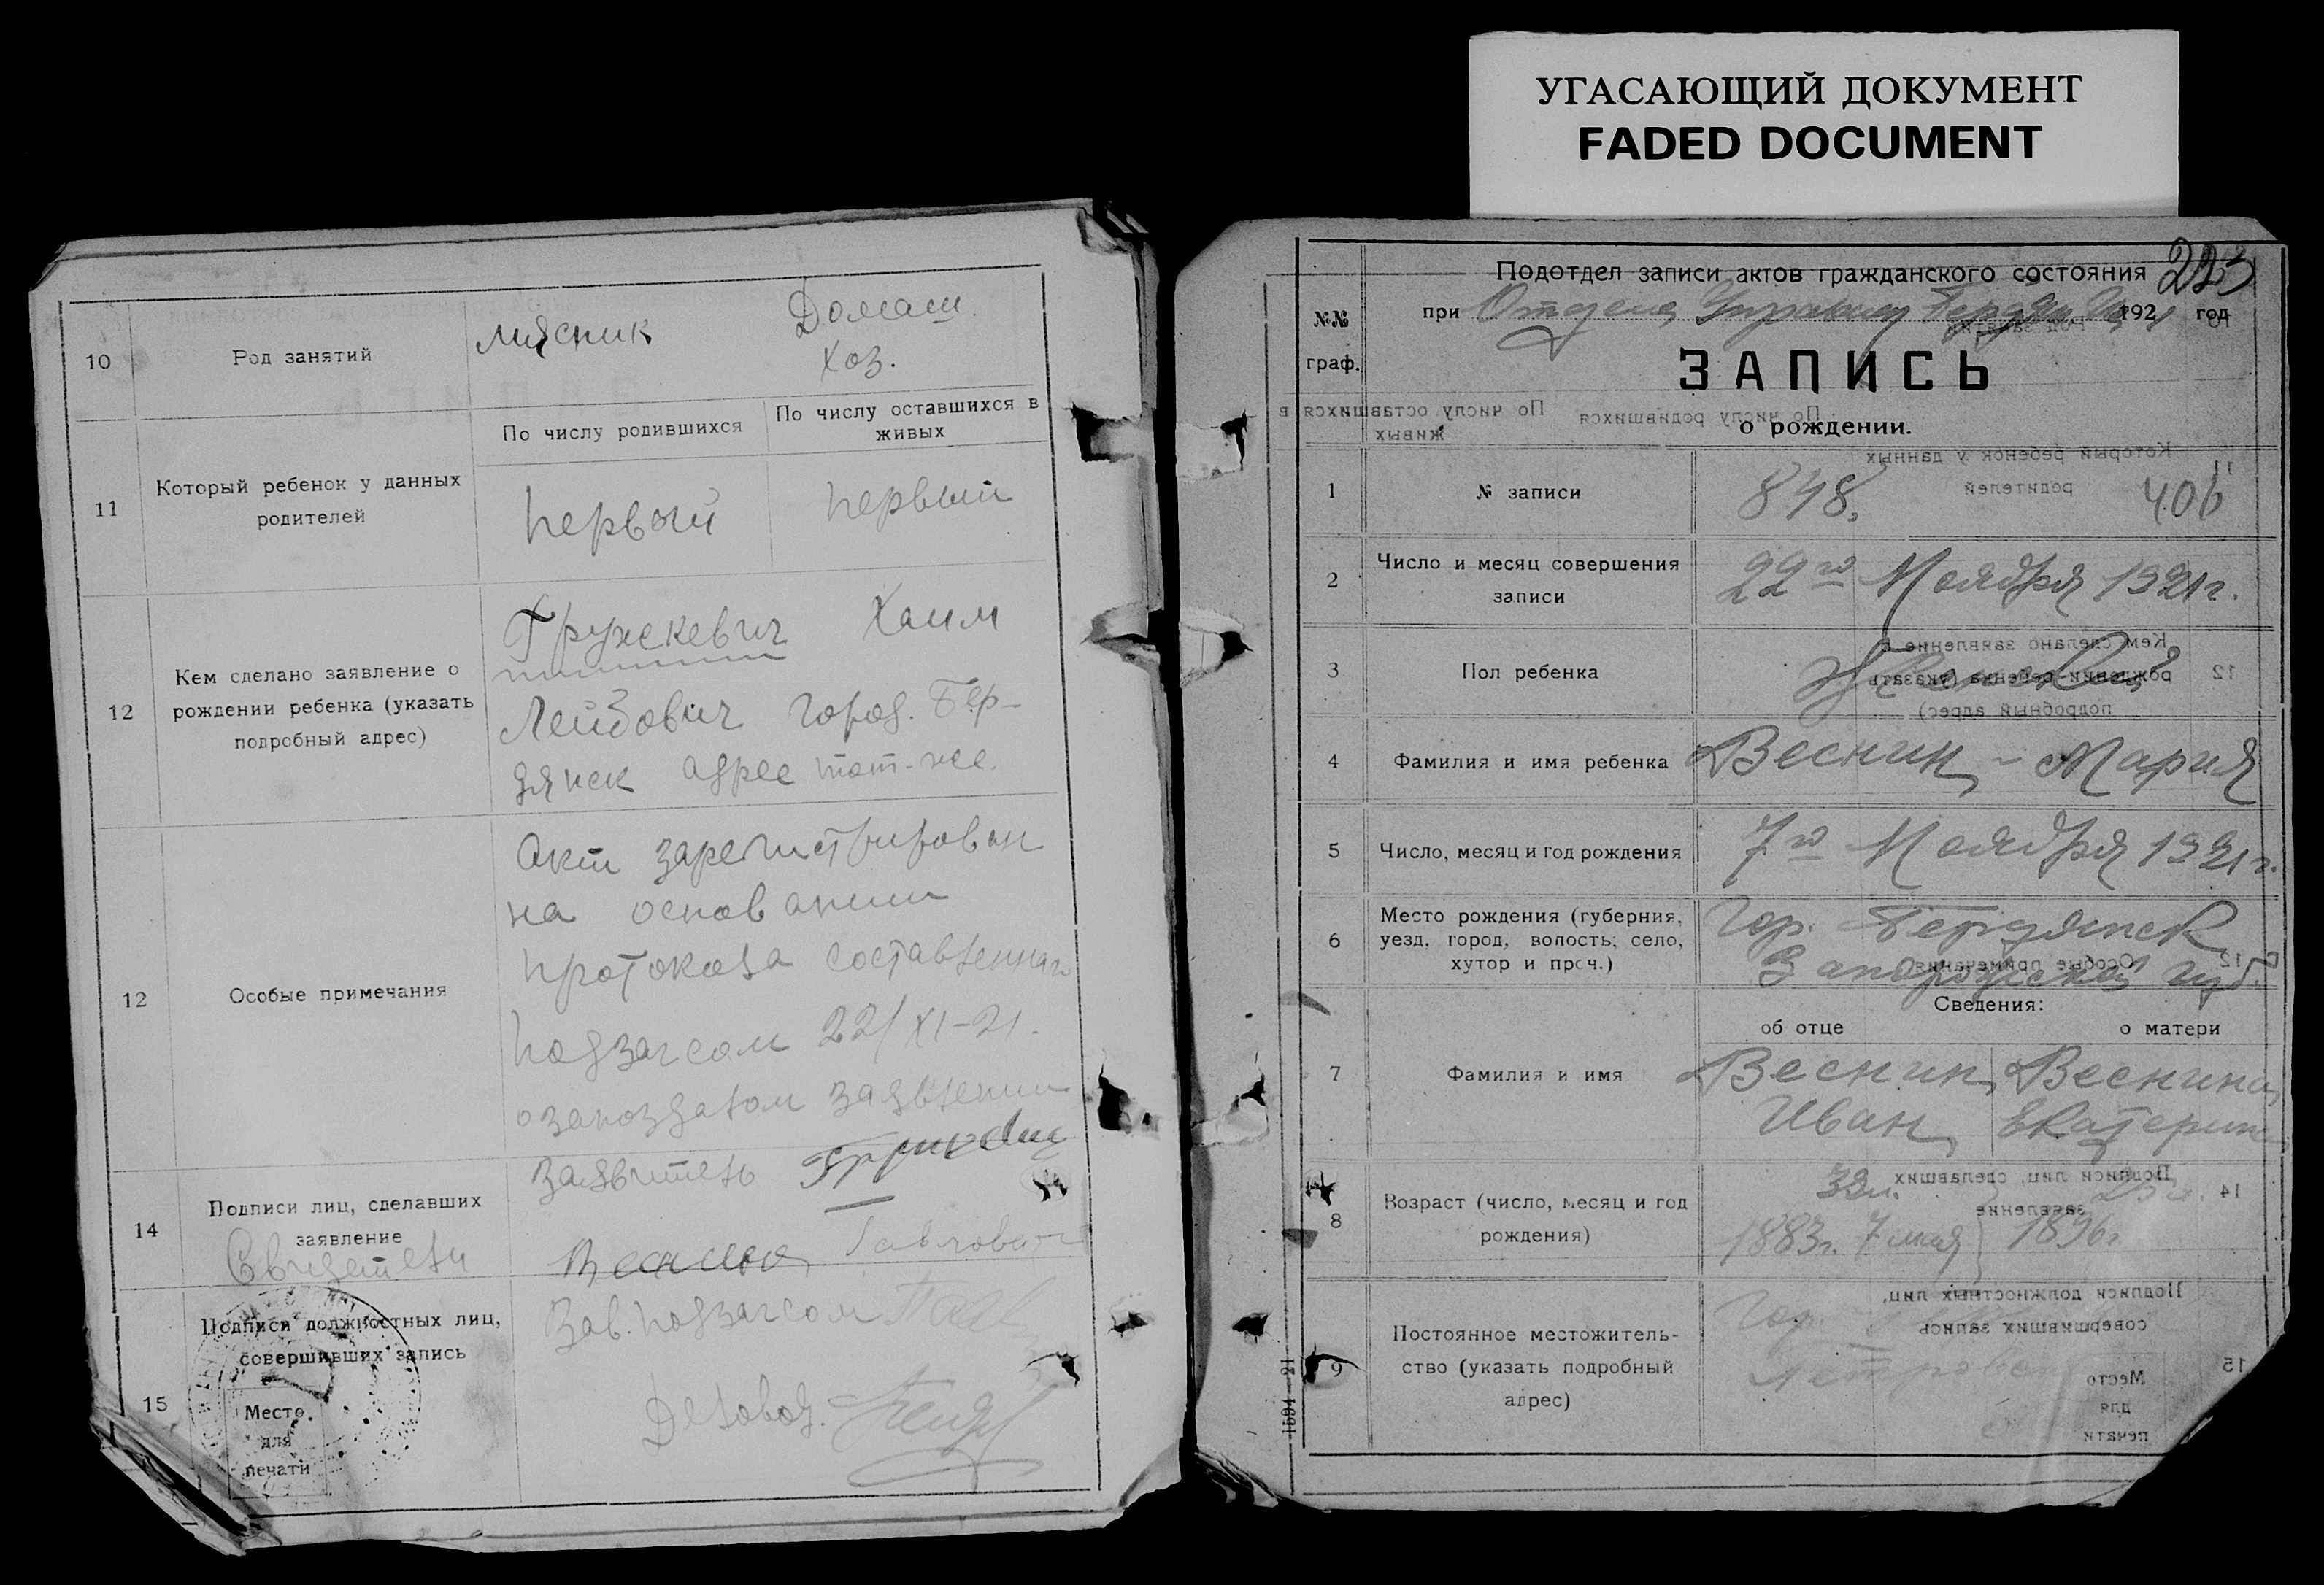 УГАСАЮЩИЙ ДОКУМЕНТ
FADED DOCUMENT
10
Род занятий
мясник
Домаш.
хоз.
11
Который ребенок у данных
родителей
По числу родившихся
По числу оставшихся в
живых
первый
первый
12
Кем сделано заявление о
рождении ребенка (указать
подробный адрес)
Хаим
Лейбович город. Бер-
дянск адрес тот-же.
12
Особые примечания
Акт зарегистрирован
на основании
протокола составленнаго
подзагсом 22/XI-21.
о запоздалом заявлении
14
Подписи лиц, сделавших
заявление
Свидетели
заявитель
15
Подписи должностных лиц,
совершивших запись
Место
для
печати
Зав. подзагсом
Деловод.
223
Подотдел записи актов гражданского состояния
№№
граф.
при Отдела Управлен 1921 год
ЗАПИСЬ
о рождении.
1
№ записи
848.
406
2
Число и месяц совершения
записи
22го Ноября 1921г.
3
Пол ребенка
4
Фамилия и имя ребенка
Веснин - Мария
5
Число, месяц и год рождения
7го Ноября 1921г.
6
Место рождения (губерния,
уезд, город, волость, село,
хутор и проч.)
Гор. Бердянск
Запорожской губ.
Сведения:
об отце
о матери
7
Фамилия и имя
Веснин
Иван
Веснина
Екатерина
8
Возраст (число, месяц и год
рождения)
1883г. 7 мая
1896г
9
Постоянное местожитель-
ство (указать подробный
адрес)
Гор.
1594—21